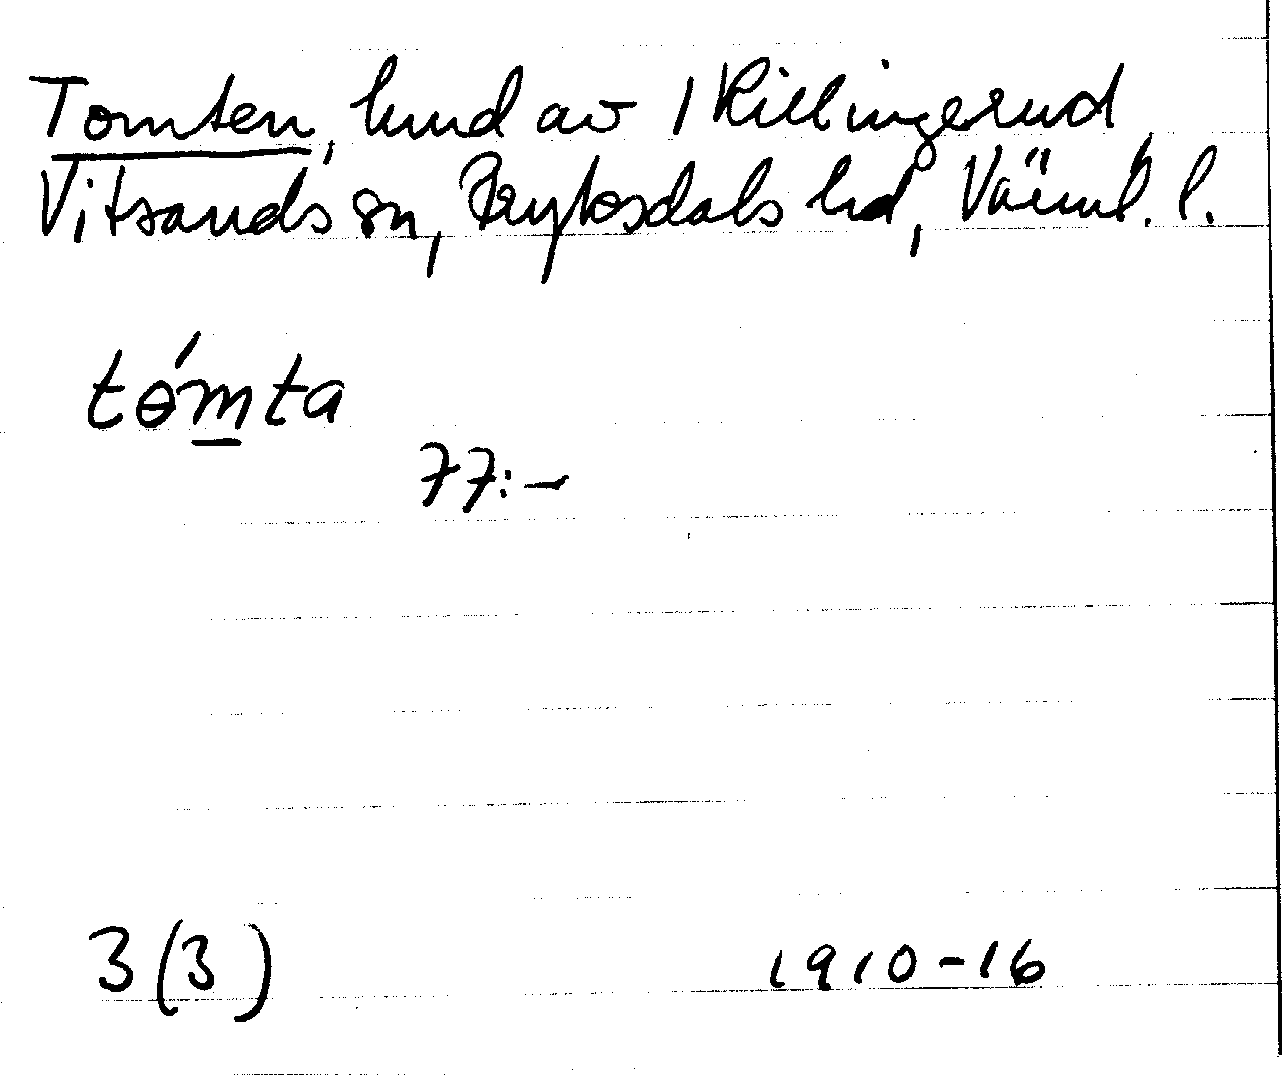 Tomten, hmd av 1 Killingerud
Vitsands sn, Fryksdals hd, Värml. l.
tómta
77:-
3 (3)
1910-16